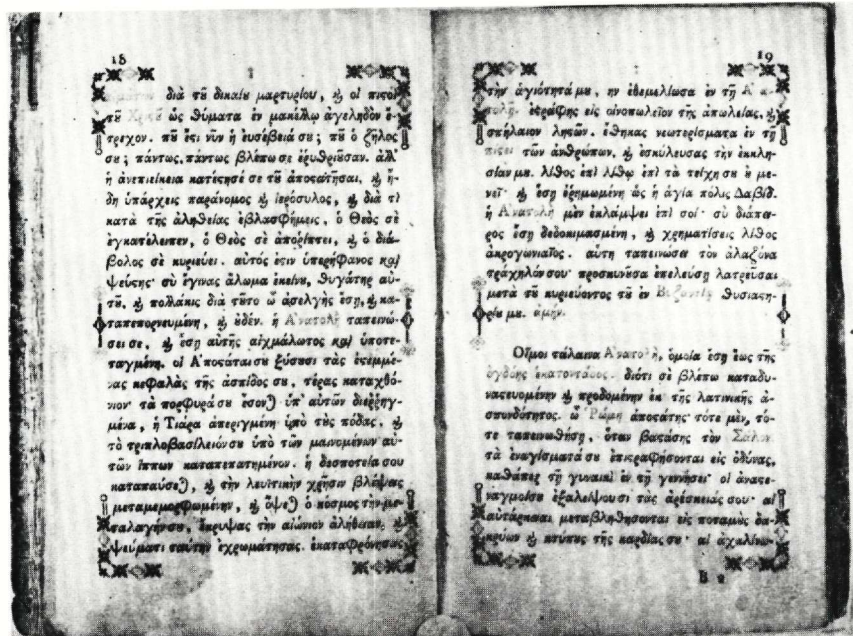 18
διὰ τȣ͂ δικαίȣ μαρτυρίου, ϗ οἱ πιςοὶ
τȣ͂ Χριςȣ͂ ὡς θύματα ἐν μακέλλῳ ἀγεληδὸν ἔ-
τρεχον. πȣ͂ ἔςι νῦν ἡ εὐσέβειά σȣ; πȣ͂ ὁ ζῆλος
σȣ; πάντως, πάντως βλέπω σε ἐρυθριῶσαν. ἀλλ'
ἡ ἀνεπιείκεια κατέςησέ σε τȣ͂ ἀποςατῆσαι, ϗ ἤ-
δη ὑπάρχεις παράνομος ϗ ἱερόσυλος, ϗ διὰ τὶ
κατὰ τῆς ἀληθείας ἐβλασφήμεις, ὁ Θεὸς σὲ
ἐγκατέλειπεν, ὁ Θεὸς σὲ ἀποῤῥίπτει, ϗ ὁ διά-
βολος σὲ κυριεύει. αὐτός ἐςιν ὑπερήφανος καὶ
ψεύςης· σὺ ἔγινας ἅλωμα ἐκείνȣ, θυγάτηρ αὐ-
τȣ͂. ϗ πολλάκις διὰ τȣ͂το ὦ ἀσελγὴς ἔσῃ, ϗ κα-
ταπεπορνευμένη, ϗ ȣ̓δέν. ἡ Ἀνατολὴ ταπεινώ-
σει σε, ϗ ἔσῃ αὐτῆς αἰχμάλωτος καὶ ὑποτε-
ταγμένη. οἱ Ἀποςάται σȣ ξύσȣσι τὰς ἐςεμμέ-
νας κεφαλὰς τῆς ἀσπίδος σȣ, τέρας καταχθό-
νιον· τὰ πορφυρᾶ σȣ ἔσονται ὑπ' αὐτῶν διεῤῥηγ-
μένα, ἡ Τιάρα ἀπεριγμένη ὑπὸ τȣ̀ς πόδας, ϗ
τὸ τριπλοβασίλειόν σȣ ὑπὸ τῶν μαινομένων αὐ-
τῶν ἵππων καταπεπατημένον. ἡ δεσποτεία σου
καταπαύσεται, ϗ τὴν λευϊτικὴν χρῆσιν βλέψεις
μεταμεμορφωμένην, ϗ ὄψεται ὁ κόσμος τὴν με-
ταλαγήν σȣ, ἔκρυψας τὴν αἰώνιον ἀλήθειαν, ϗ
ψεύματι ταύτην ἐχρωμάτησας. ἐκαταφρόνησας
19
τὴν ἁγιότητά μȣ, ην ἐθεμελίωσα ἐν τῇ Ἀνα-
τολῇ· ἐςράφης εἰς οἰνοπωλεῖον τῆς ἀπωλείας, ϗ
σπήλαιον λῃςῶν. ἔθηκας νεωτερίσματα ἐν τῇ
πίςει τῶν ἀνθρώπων, ϗ ἐσκύλευσας τὴν ἐκκλη-
σίαν μȣ. λίθος ἐπὶ λίθῳ ἐπὶ τὰ τείχη σȣ ȣ̓ με-
νεῖ· ϗ ἔσῃ ἐρημωμένη ὡς ἡ ἁγία πόλις Δαβίδ.
ἡ Ἀνατολὴ μὲν ἐκλάμψει ἐπὶ σοί· σὺ διάπυ-
ρος ἔσῃ δεδοκιμασμένη, ϗ χρηματίσεις λίθος
ἀκρογωνιαῖος. αὕτη ταπεινώσει τὸν ἀλαζόνα
τράχηλόν σου· προσκυνῆσα ἐπελεύσῃ λατρεῦσαι
μετὰ τȣ͂ κυριεύοντος τȣ͂ ἐν Βυζαντίῳ θυσιαςη-
ρίȣ μȣ. ἀμήν.
Οἴμοι τάλαινα Ἀνατολή, ὁμοία ἔσῃ ἕως τῆς
ὀγδόης ἑκατοντάδος. διότι σὲ βλέπω καταδυ-
ναςευομένην ϗ προδομένην ἐκ τῆς λατινικῆς ἀ-
σπονδότητος. ὦ Ῥώμη ἀποςάτης τότε μὲν, τό-
τε ταπεινωθήσῃ, ὅταν βαςάσῃς τὸν
τὰ ἐναγίσματά σȣ ἐπιςραφήσονται εἰς ὀδύνας,
καθάπερ τῇ γυναικὶ ἐν τῇ γεννήσει· οἱ ἀναςε-
ναγμοί σȣ ἐξαλείψουσι τὰς ἀρέσκειάς σου· αἱ
αὐτάρκειαι μεταβληθήσονται εἰς ποταμȣ̀ς δα-
κρύων ϗ κτύπȣς τῆς καρδίας σȣ· αἱ ἀχαλίνω-
B 2